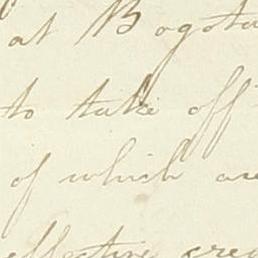 at Bogota
to take off
of which are
effective cre